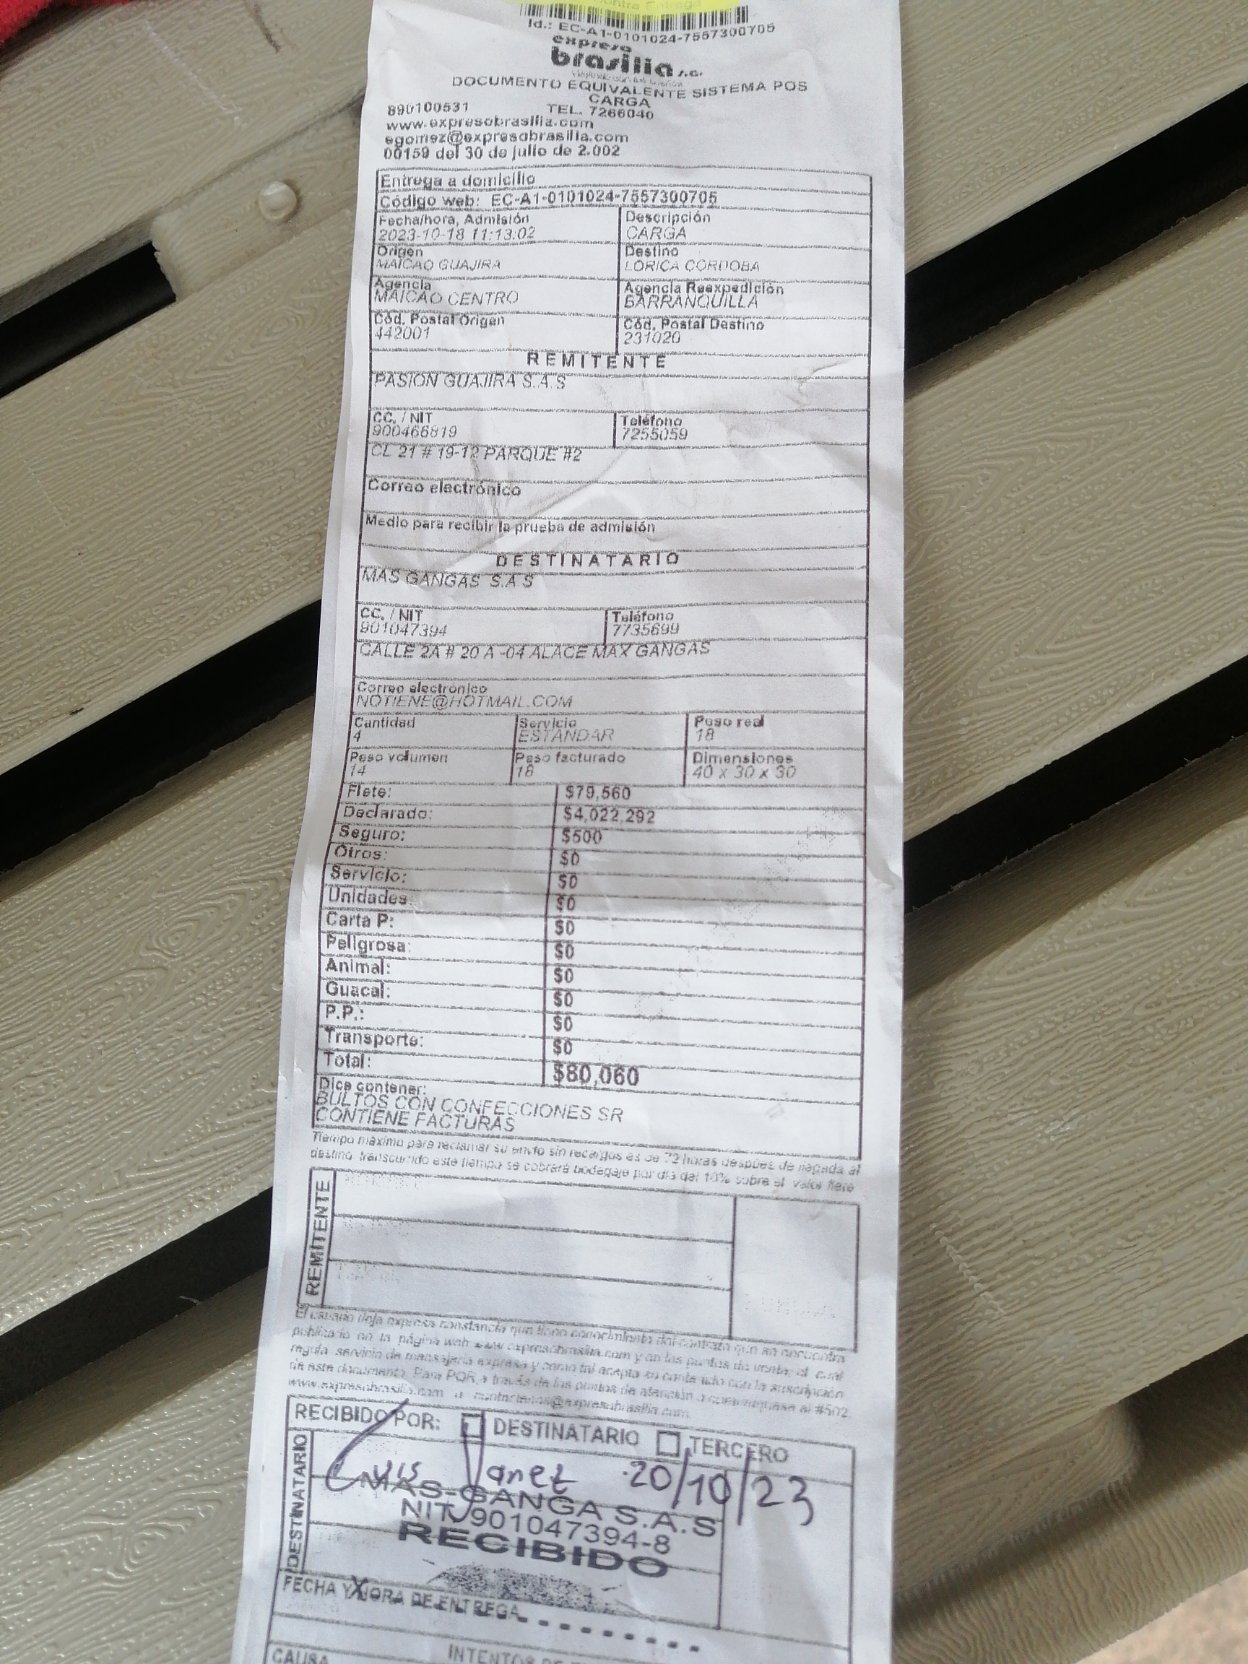 Contra Entrega
Id.: EC-A1-0101024-7557300705
expreso
brasilia s.a.
DOCUMENTO EQUIVALENTE SISTEMA POS
CARGA
890100531 TEL. 7266040
www.expresobrasilia.com
egomez@expresobrasilia.com
00159 del 30 de julio de 2.002
Entrega a domicilio
Código web: EC-A1-0101024-7557300705
Fecha/hora, Admisión Descripción
2023-10-18 11:13:02 CARGA
Origen Destino
MAICAO GUAJIRA LORICA CORDOBA
Agencia Agencia Reexpedición
MAICAO CENTRO BARRANQUILLA
Cód. Postal Origen Cód. Postal Destino
442001 231020
REMITENTE
PASION GUAJIRA S.A.S
CC. / NIT Teléfono
900466819 7255059
CL 21 # 19-12 PARQUE #2
Correo electrónico
Medio para recibir la prueba de admisión
DESTINATARIO
MAS GANGAS S.A.S
CC. / NIT Teléfono
901047394 7735699
CALLE 2A # 20 A -04 ALACE MAX GANGAS
Correo electrónico
NOTIENE@HOTMAIL.COM
Cantidad Servicio Peso real
4 ESTANDAR 18
Peso volumen Peso facturado Dimensiones
14 18 40 x 30 x 30
Flete: $79,560
Declarado: $4,022,292
Seguro: $500
Otros: $0
Servicio: $0
Unidades $0
Carta P: $0
Peligrosa: $0
Animal: $0
Guacal: $0
P.P.: $0
Transporte: $0
Total: $80,060
Dice contener:
BULTOS CON CONFECCIONES SR
CONTIENE FACTURAS
Tiempo máximo para reclamar su envío sin recargos es de 72 horas después de llegada al
destino, transcurrido este tiempo se cobrará bodegaje por día del 10% sobre el valor flete
REMITENTE
El usuario deja expresa constancia que tiene conocimiento del contrato que se encuentra
publicado en la página web www.expresobrasilia.com y en los puntos de venta, el cual
regula servicio de mensajería expresa y como tal acepta su contenido con la suscripción
de este documento. Para PQR a través de los puntos de atención o comuníquese al #502
www.expresobrasilia.com
RECIBIDO POR: DESTINATARIO TERCERO
DESTINATARIO
Luis Yanez 20/10/23
MAS-GANGA S.A.S
NIT. 901047394-8
RECIBIDO
FECHA Y HORA DE ENTREGA
CAUSA INTENTOS DE